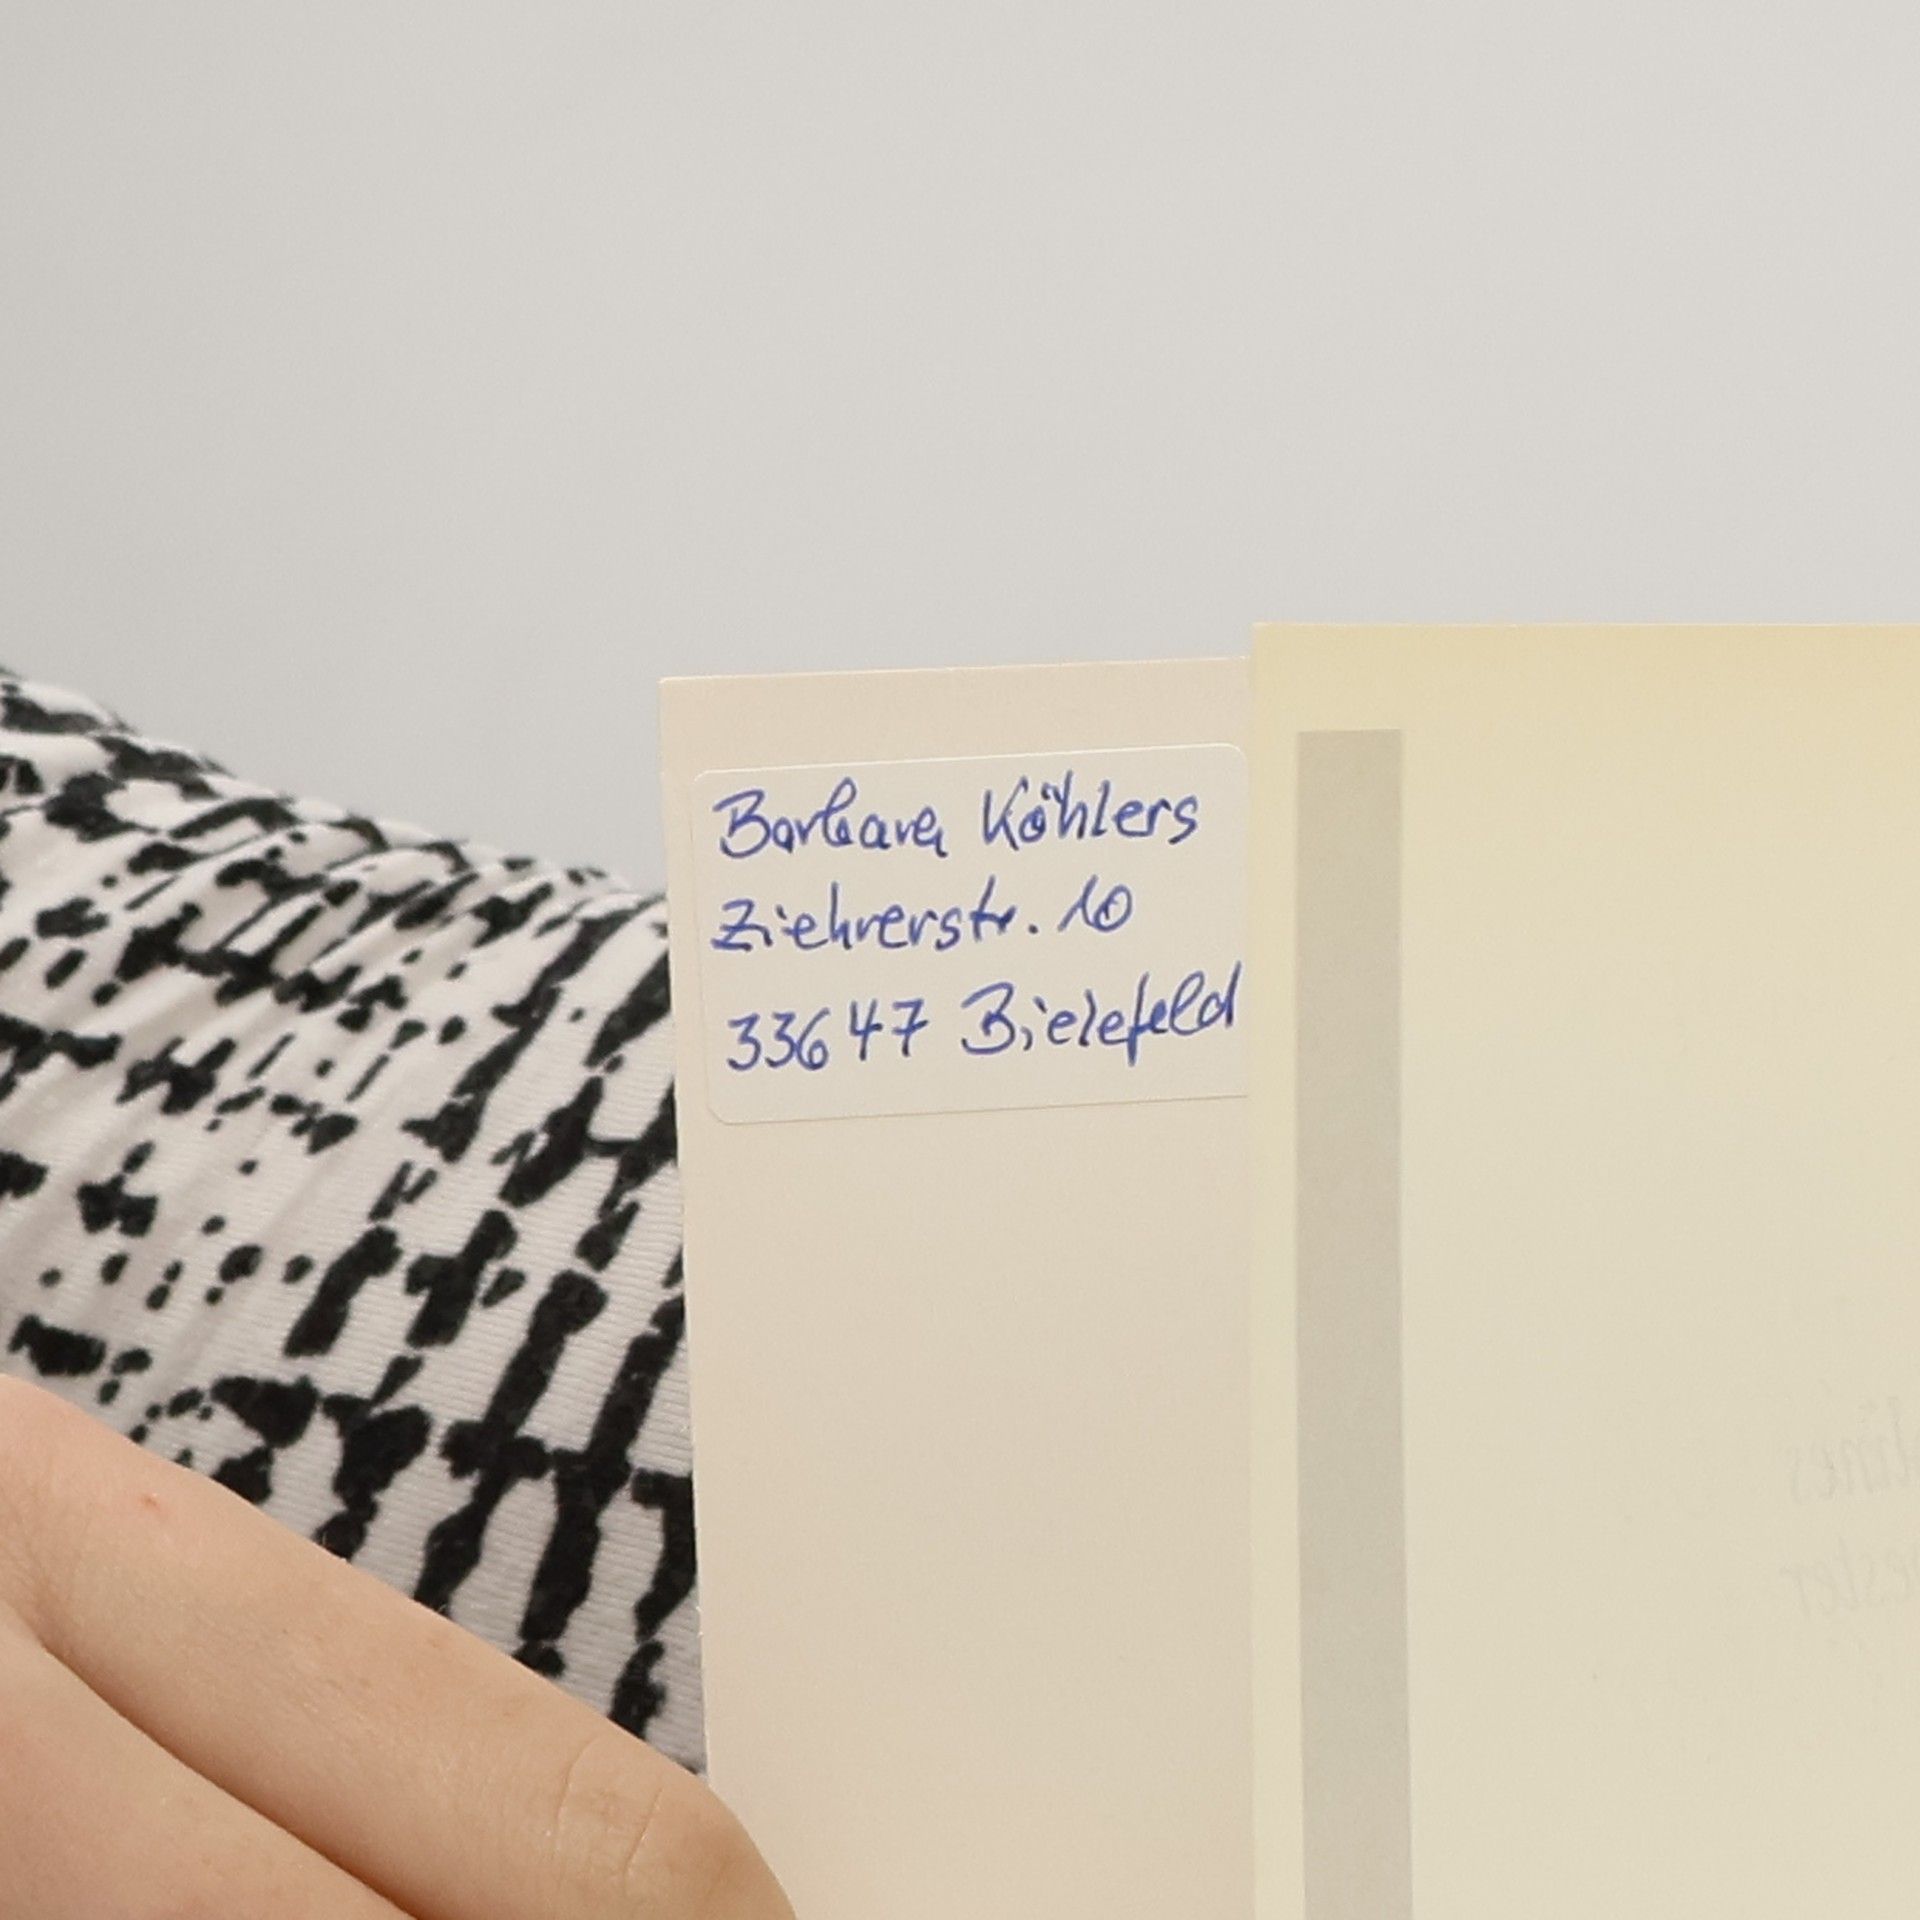 Barbara Köhlers
Ziehrerstr. 10
33647 Bielefeld